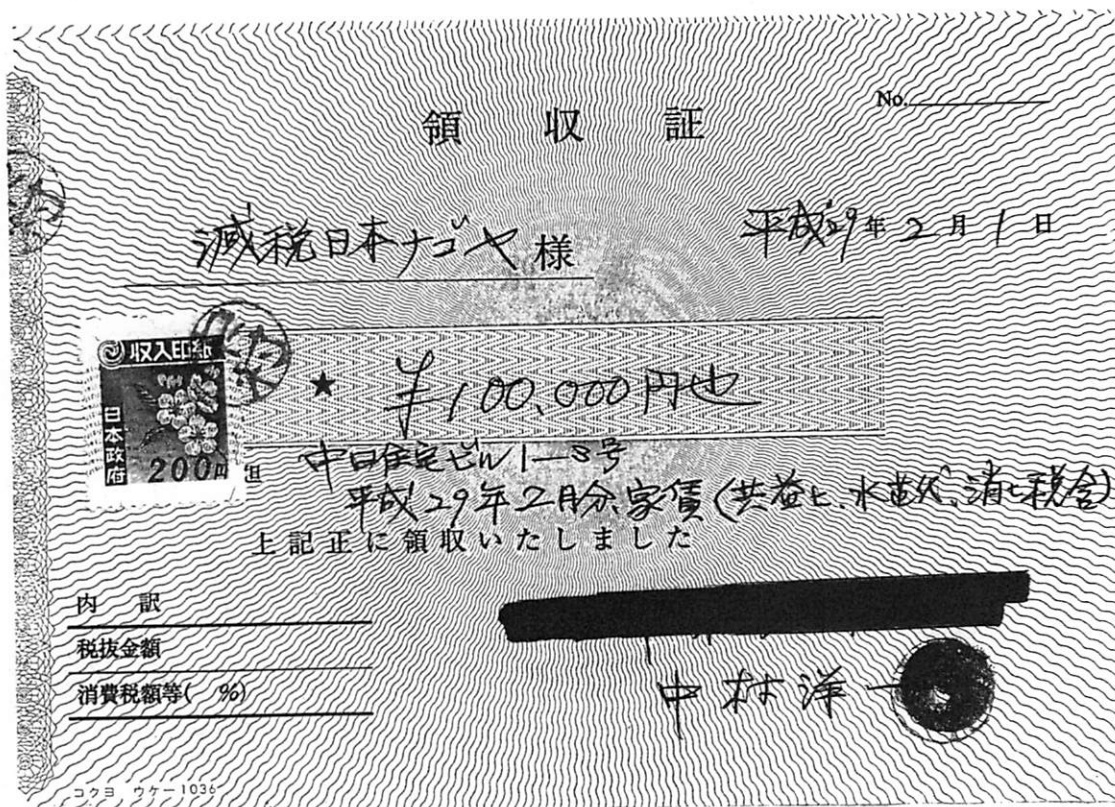 No.
領収証
減税日本ナゴヤ 様
平成29年2月1日
収入印紙
日本政府
200円
★ ¥100,000円也
但 中日住宅ビル1-3号
平成29年2月分家賃(共益ヒ、水道代、消ヒ税含)
上記正に領収いたしました
内訳
税抜金額
消費税額等( %)
中村洋一
コクヨ ウケー1036